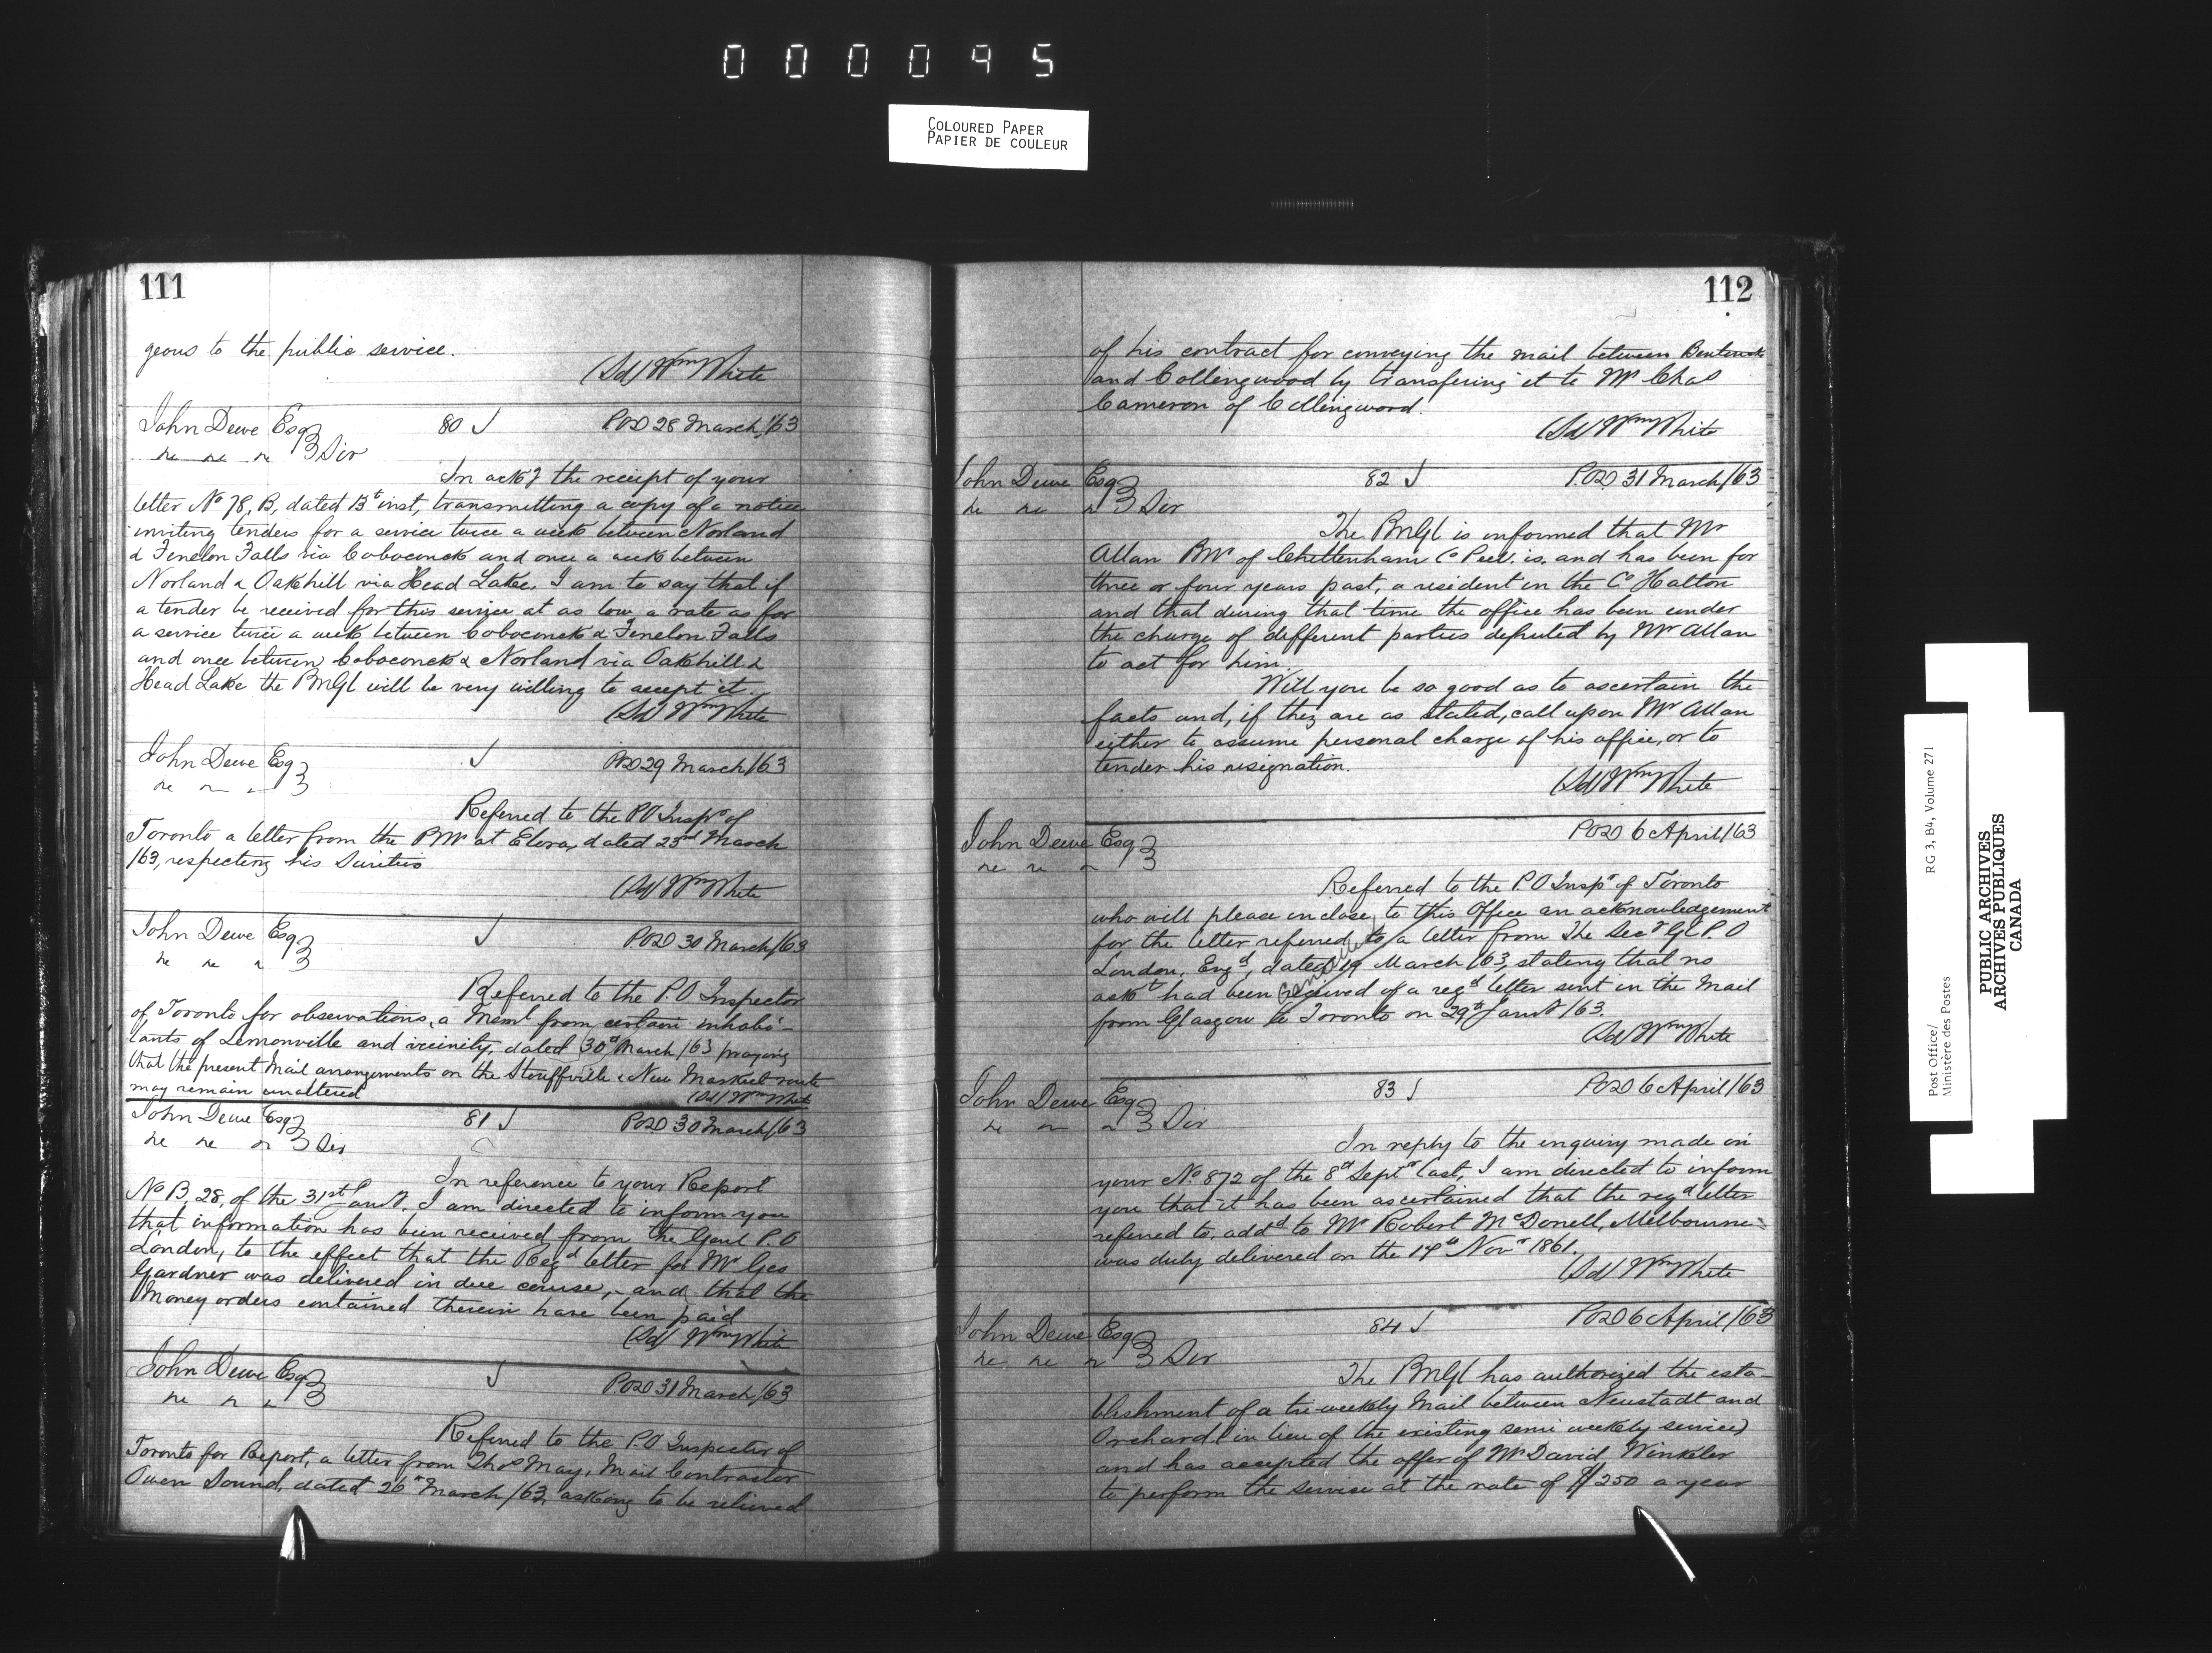 000095
COLOURED PAPER
PAPIER DE COULEUR
111
geous to the public service.
(Sd) Wm White
John Dewe Esq 80 P.O.D 28 March /63
Sir
In ackg the receipt of your
letter No 78, B, dated 13t inst, transmitting a copy of a notice
inviting tenders for a service twice a week between Norland
& Fenelon Falls via Coboconck and once a week between
Norland & Oakhill via Head Lake. I am to say that if
a tender be received for this service at as low a rate as for
a service twice a week between Coboconck & Fenelon Falls
and once between Coboconck & Norland via Oakhill &
Head Lake the PMGl will be very willing to accept it.
(Sd) Wm White
John Dewe Esq P.O.D 29 March /63
Referred to the P.O Inspr of
Toronto a letter from the PMr at Elora, dated 23rd March
/63, respecting his Sureties
(Sd) Wm White
John Dewe Esq P.O.D 30 March /63
Referred to the P.O Inspector
of Toronto for observations, a Meml from certain inhabi-
tants of Lemonville and vicinity, dated 30th March /63 praying
that the present Mail arrangements on the Stouffville & New Market route
may remain unaltered
(Sd) Wm White
John Dewe Esq 81 P.O.D 30 March /63
Sir
In reference to your Report
No B, 28, of the 31st Jany. I am directed to inform you
that information has been received from the Genl P.O
London, to the effect that the Regd letter for Mr Geo
Gardner was delivered in due course, and that the
Money orders contained therein have been paid
(Sd) Wm White
John Dewe Esq P.O.D 31 March /63
Referred to the P.O Inspector of
Toronto for Report, a letter from Thos May, Mail Contractor
Owen Sound, dated 26th March /63, asking to be relieved
112
of his contract for conveying the mail between Bentinck
and Collingwood by transfering it to Mr Chas
Cameron of Collingwood.
(Sd) Wm White
John Dewe Esq 82 P.O.D. 31 March /63
Sir
The PMGl is informed that Mr
Allan PMr of Cheltenham Co Peel. is. and has been for
three or four years past, a resident in the Co Halton
and that during that time the office has been under
the charge of different parties deputed by Mr Allan
to act for him.
Will you be so good as to ascertain the
facts and, if they are as stated, call upon Mr Allan
either to assume personal charge of his office, or to
tender his resignation.
(Sd) Wm White
John Dewe Esq P.O.D 6 April /63
Referred to the P.O Inspr of Toronto
who will please inclose to this Office an acknowledgement
for the letter referred to a letter from The Secy Gl P.O
London, Engd, dated 19 March /63, stating that no
ackt had been received of a regd letter sent in the Mail
from Glasgow to Toronto on 29th Jany /63.
(Sd) Wm White
John Dewe Esq 83 P.O.D 6 April /63
Sir
In reply to the enquiry made in
your No 872 of the 8th Septr last, I am directed to inform
you that it has been ascertained that the regd letter
referred to, addd to Mr Robert McDonell, Melbourne
was duly delivered on the 14th Novr 1861.
(Sd) Wm White
John Dewe Esq 84 P.O.D 6 April /63
Sir
The PMGl has authorized the esta-
blishment of a tri-weekly Mail between Neustadt and
Orchard (in lieu of the existing semi weekly service)
and has accepted the offer of Mr David Winkler
to perform the service at the rate of $250 a year
Post Office/
Ministère des Postes
RG 3, B4, Volume 271
PUBLIC ARCHIVES
ARCHIVES PUBLIQUES
CANADA